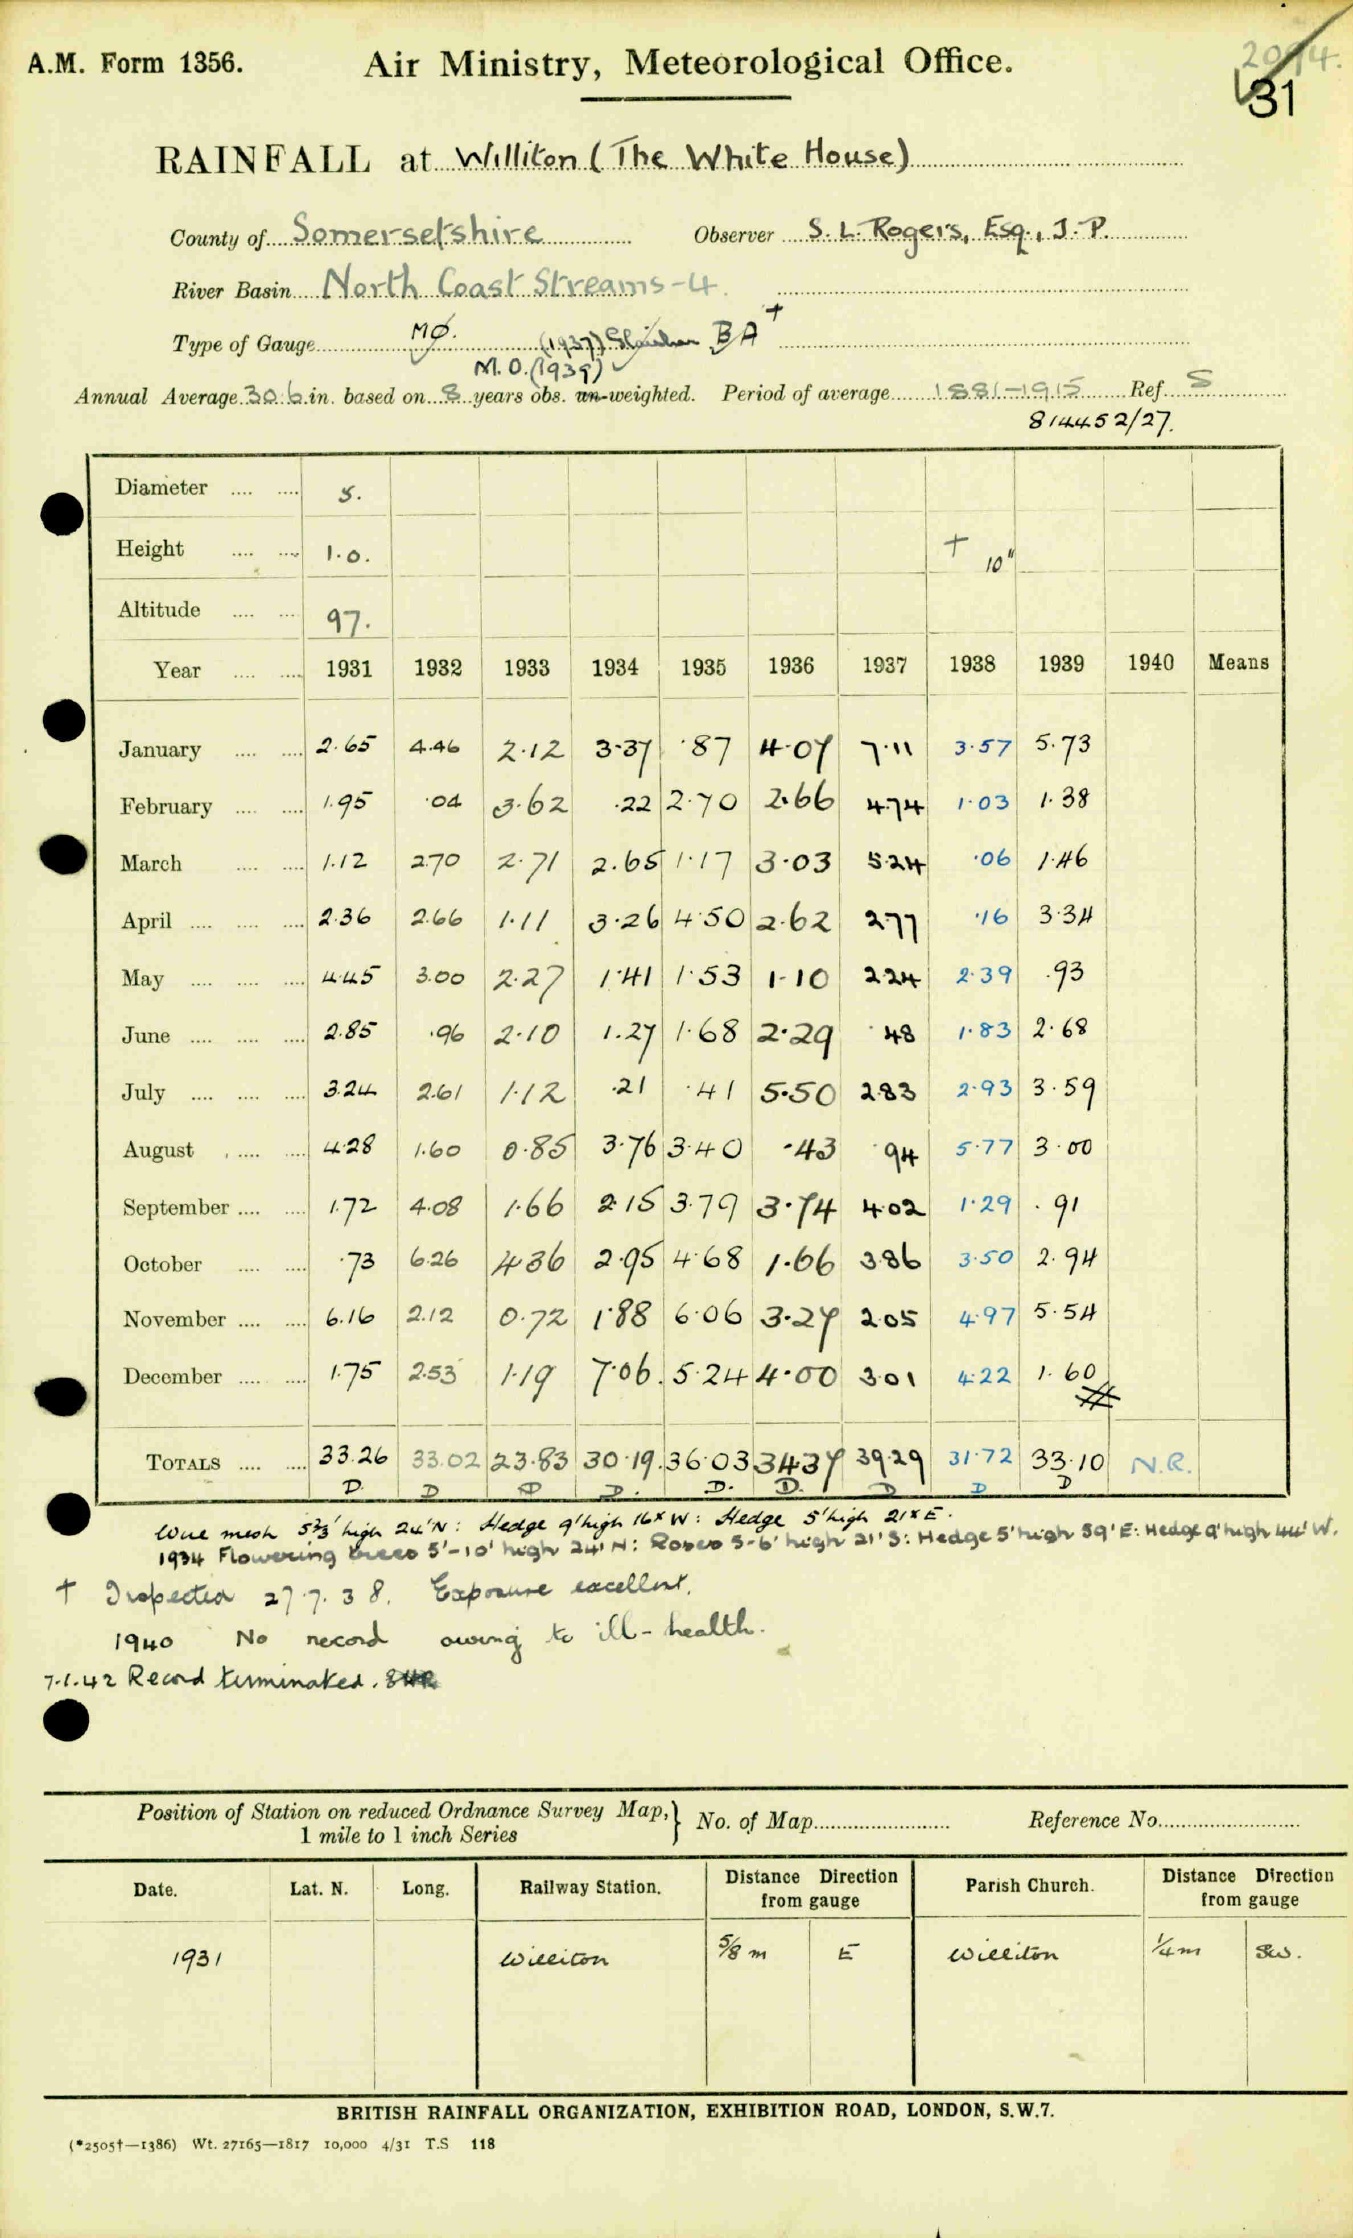 2094.
31
A.M. Form 1356. Air Ministry, Meteorological Office.
RAINFALL at Williton (The White House)
County of Somersetshire Observer S. L. Rogers, Esq., J. P.
River Basin North Coast Streams-4.
Type of Gauge MO. (1937) BA †
M.O. (1939)
Annual Average 30.6 in. based on 8 years obs. un-weighted. Period of average 1881-1915 Ref. S
814452/27.
Diameter .... .... 5.
Height .... .... 1.0. † 10"
Altitude .... .... 97.
Year .... .... 1931 1932 1933 1934 1935 1936 1937 1938 1939 1940 Means
January .... .... 2.65 4.46 2.12 3.37 .87 4.07 7.11 3.57 5.73
February .... .... 1.95 .04 3.62 .22 2.70 2.66 4.74 1.03 1.38
March .... .... 1.12 2.70 2.71 2.65 1.17 3.03 5.24 .06 1.46
April .... .... .... 2.36 2.66 1.11 3.26 4.50 2.62 2.77 .16 3.34
May .... .... .... 4.45 3.00 2.27 1.41 1.53 1.10 2.24 2.39 .93
June .... .... .... 2.85 .96 2.10 1.27 1.68 2.29 .48 1.83 2.68
July .... .... .... 3.24 2.61 1.12 .21 .41 5.50 2.83 2.93 3.59
August .... .... 4.28 1.60 0.85 3.76 3.40 .43 .94 5.77 3.00
September .... .... 1.72 4.08 1.66 2.15 3.79 3.74 4.02 1.29 .91
October .... .... .73 6.26 4.36 2.95 4.68 1.66 3.86 3.50 2.94
November .... .... 6.16 2.12 0.72 1.88 6.06 3.27 2.05 4.97 5.54
December .... .... 1.75 2.53 1.19 7.06. 5.24 4.00 3.01 4.22 1.60
TOTALS .... .... 33.26 33.02 23.83 30.19. 36.03 34.37 39.29 31.72 33.10 N.R.
D. D D D. D. D. D D D
Wire mesh 5⅔' high 24' N: Hedge 9' high 16x W: Hedge 5' high 21x E.
1934 Flowering trees 5'-10' high 24' N: Roses 5-6' high 21' S: Hedge 5' high 59' E: Hedge 9' high 44' W.
† Inspected 27.7.38. Exposure excellent.
1940 No record owing to ill-health.
7.1.42 Record terminated.
Position of Station on reduced Ordnance Survey Map, } No. of Map Reference No.
1 mile to 1 inch Series
Date. Lat. N. Long. Railway Station. Distance Direction from gauge Parish Church. Distance Direction from gauge
1931 Williton 5/8 m E Williton 1/4 m SW.
BRITISH RAINFALL ORGANIZATION, EXHIBITION ROAD, LONDON, S.W.7.
(*2505†—1386) Wt. 27165—1817 10,000 4/31 T.S 118